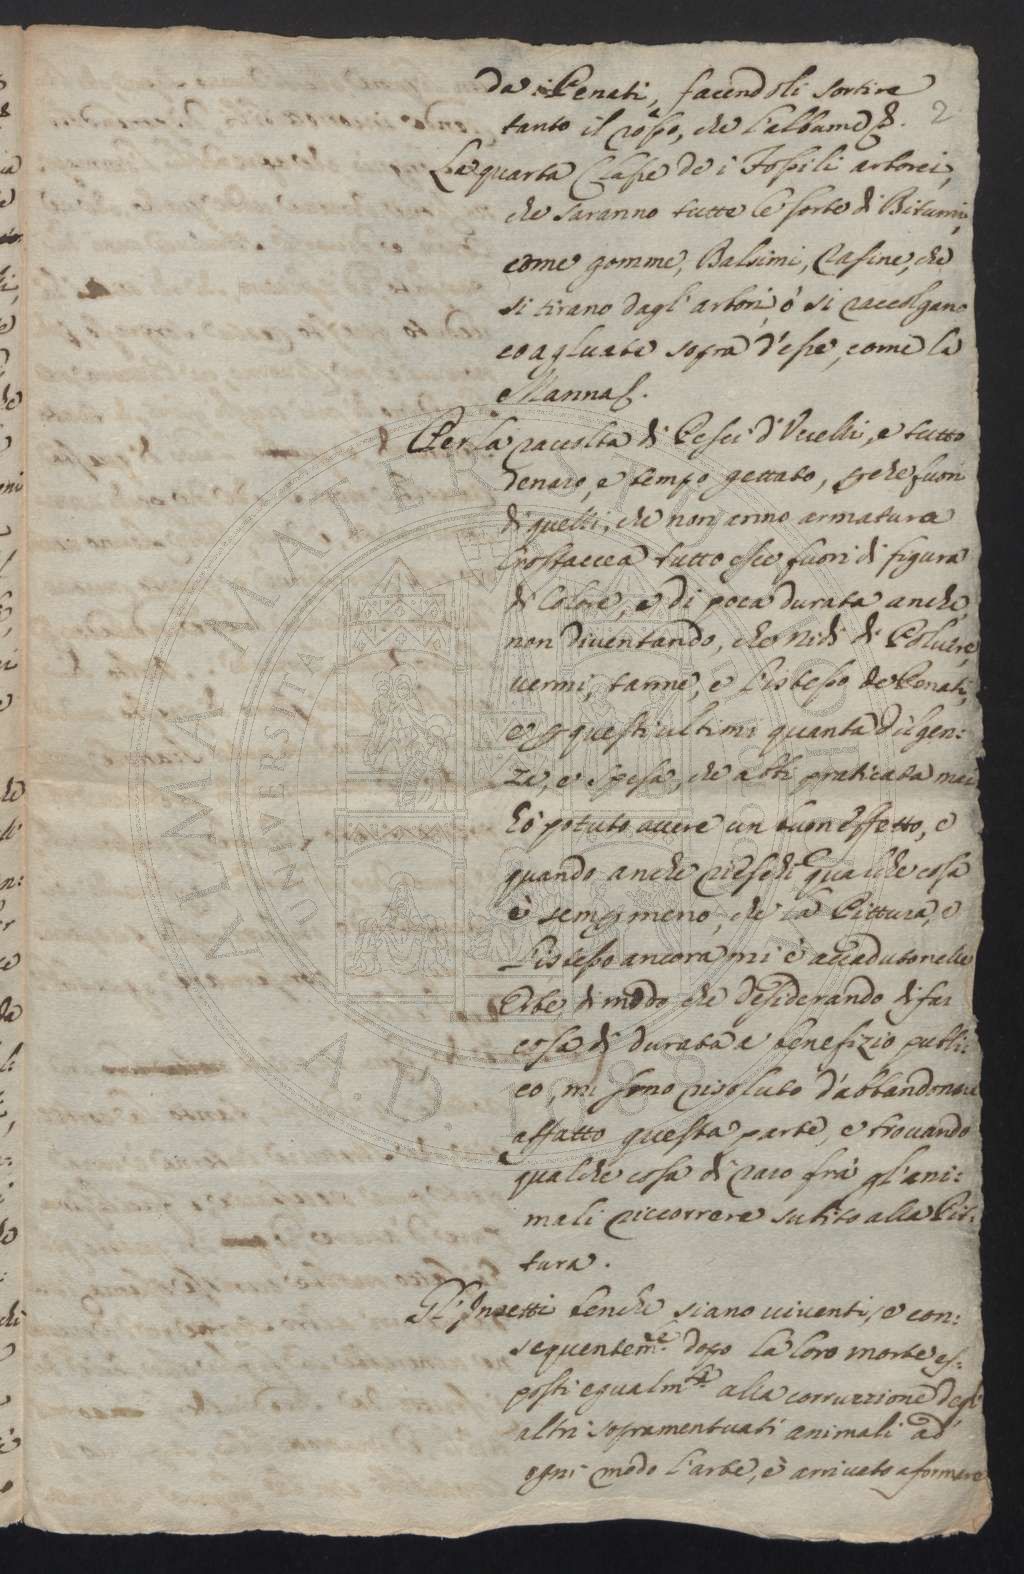 da i Penati, facendoli sortire
tanto il rosso, che l'albume. 2
La quarta Classe de i Fossili arborei,
che saranno tutte le sorte di Bitumi,
come gomme, Balsimi, Rasine, che
si tirano dagl'arbori, ò si raccolgano
coagluate sopra d'esse, come la
Manna.
Per la raccolta di Pesci d'Vcelli, e tutto
denaro, e tempo gettato, perche fuori
di quelli, che non anno armatura
Crostaccea tutto esce fuori di figura
di Colore, e di poca durata anche
non diventando, che Nidi di Polvere,
vermi, tarme, e l'istesso de Penati,
e per questi ultimi quanta diligen:
ze, e spesa, che abbi praticata mai
hò potuto avere un buon effetto, e
quando anche riesche qualche cosa
è sempre meno, che la Pittura, e
l'istesso ancora mi è accaduto nelle
Erbe, di modo che desiderando di far
cosa di durata a benefizio publi:
co, mi sono risoluto d'abbandonare
affatto questa parte, e trovando
qualche cosa di raro frà gl'ani:
mali riccorrere subito alla Pit:
tura.
Gl'Insetti benche siano viventi, e con:
sequentem.te dopo la loro morte es:
posti egualm.te alla corruzzione degl'
altri sopramentuati animali ad
ogni modo l'arte, è arrivata a formare
ALMA MATER STUDIORUM
UNIVERSITÀ DI BOLOGNA
A.D. 1088